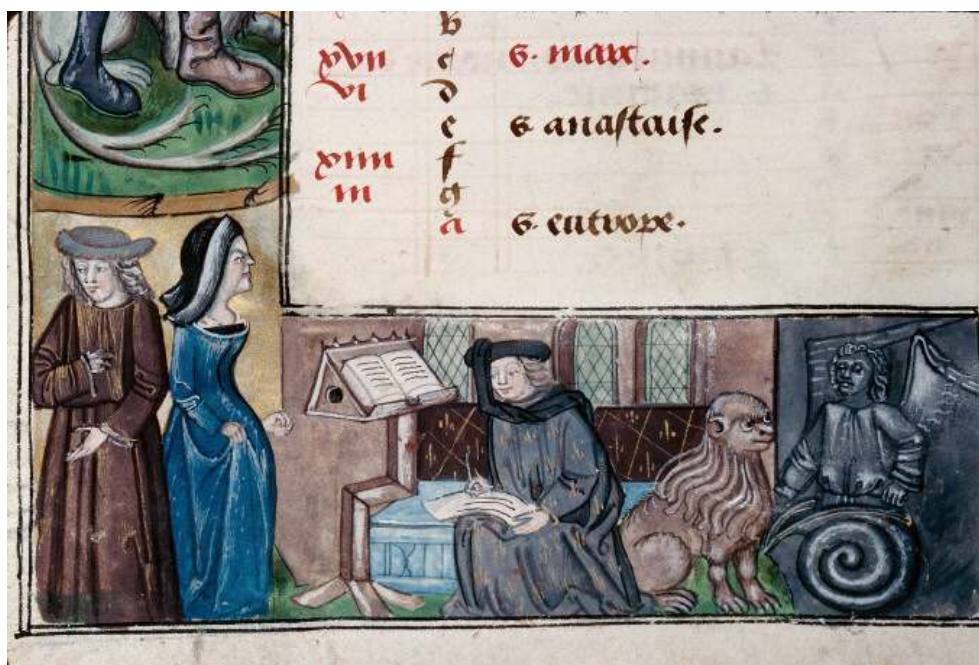 b
xvii c s. marc.
vi d
e s. anastaise.
xiiii f
iii g
a s. eutrope.